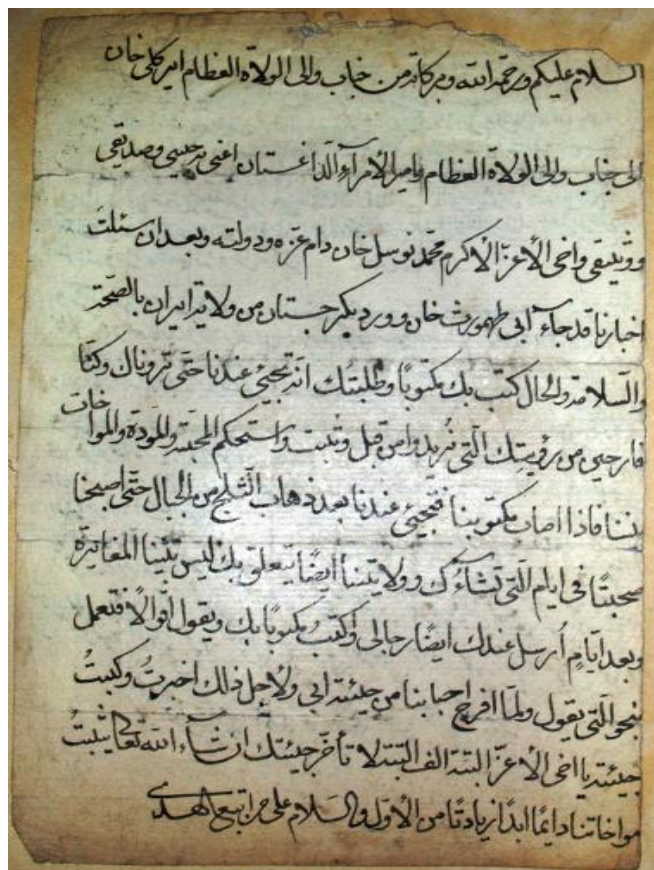 السلام عليكم ورحمة الله وبركاته من جناب والى الولاة العظام امير كلى خان
الى جناب والى الولاة العظام وامير الأمرآء الداغستان اعنى به حبيبى وصديقى
ووثيقى واخى الأعزّ الأكرم محمّد نوسل خان دام عزّه ودولته وبعد ان سئلت
اخبارنا قد جاء آبى طهمورث خان وورد بكرجستان من ولاية ايران بالصّحّة
والسّلامة والحال كتب بك مكتوبًا وطلبتك ان تجئى عندنا حتّى ترونا وكنّا
فارحين من رؤيتك الّتى نريد وامن قبل وتثبت واستحكم المحبّة والمودة والمواخات
بيننا فاذا اصاب مكتوبنا فتجئى عندنا بعد ذهاب الثّلج من الجبال حتّى اصبحنا
صحبتًا فى ايام الّتى تشآءك وولايتنا ايضًا يتعلق بك ليس بيننا المغايرة
وبعد ايّامٍ اُرسل عندك ايضًا رجالى واكتبُ مكتوبًا بك ويقول اقوالًا فتعمل
بنحو الّتى يقول ولمّا افرح احبابنا من جيئة ابى ولأجل ذالك اخبرتُ وكتبتُ
جيئته يا اخى الأعزّ البتة الف البتة لا تأخّر جيئتك ان شآء الله تعالى يثبت
مواخاتنا دايمًا ابدًا زيادتًا من الأوّل والسّلام على من اتبع الهدى